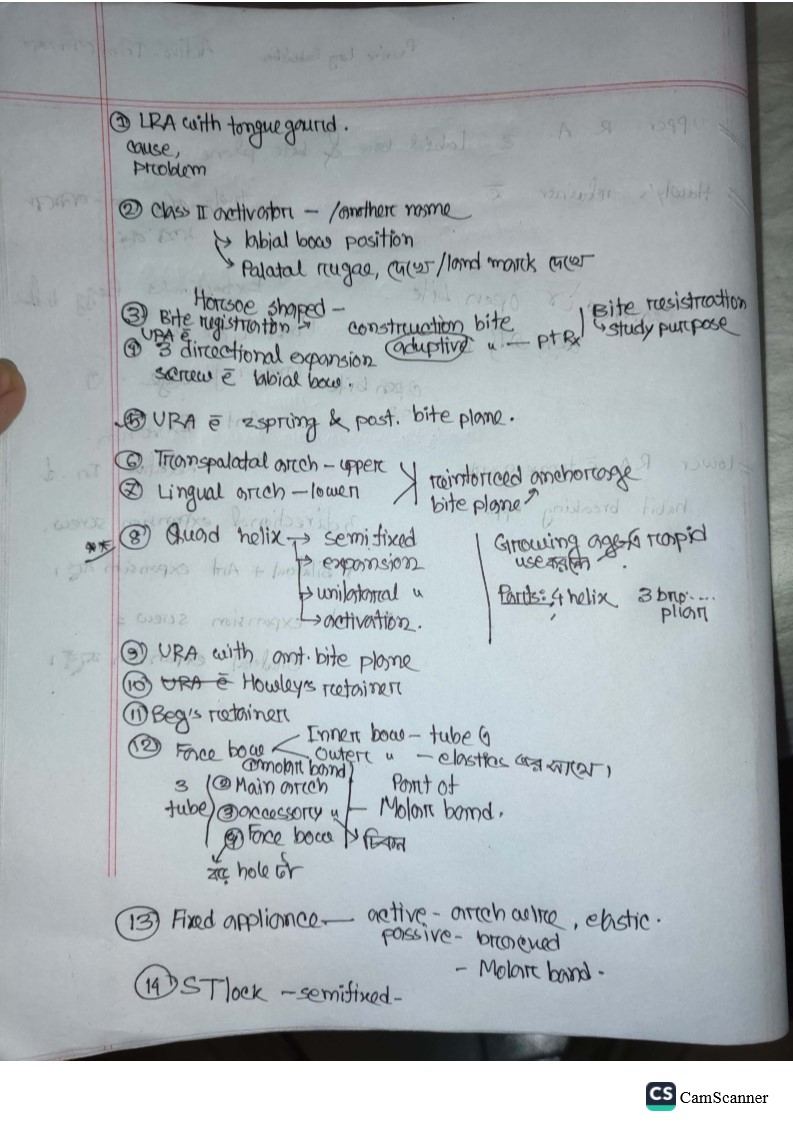 ① LRA with tongue gaurd.
cause,
problem
② Class II activator – /another name
↳ labial bow position
↳ Palatal rugae, দেখে/land mark দেখে
Horsoe shaped –
③ Bite registration → construction bite | Bite resistration
URA ē (aduptive) " — pt Rx ↳ study purpose
④ 3 directional expansion
screw ē labial bow.
⑤ URA ē zspring & post. bite plane.
⑥ Transpalatal arch – upper
⑦ Lingual arch – lower
reinforced anchorage
bite plane
** ⑧ Quad helix → semifixed
↳ expansion
↳ unilateral "
↳ activation.
Growing age-এ rapid
use
Parts: 4 helix 3 bri....
⑨ URA with ant. bite plane
⑩ URA ē Howley's retainer
⑪ Beg's retainer
⑫ Force bow < Inner bow – tube এ
Outer " – elastics এর সাথে।
① molar band
3 tube
② Main arch
③ accessory "
④ Force bow
Part of
Molar band.
চিকন
বড় hole টা
⑬ Fixed appliance — active – arch wire, elastic.
passive – bracked
– Molar band.
⑭ ST lock – semifixed –
CS CamScanner